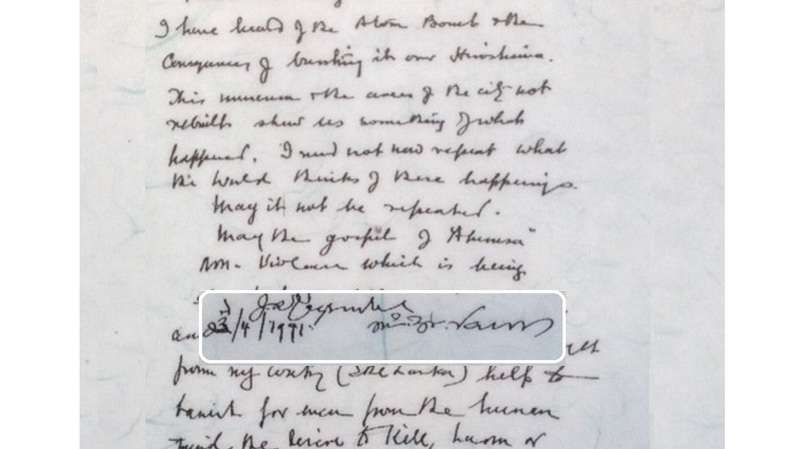 I have heard of the Atom Bomb & the
Consequences of bursting it over Hiroshima.
This museum & the areas of the city not
rebuilt show us something of what
happened. I need not now repeat what
the World thinks of these happenings.
May it not be repeated.
May the gospel of "Ahimsa"
non-Violence which is being
23/4/1991.
from my country (Sri Lanka) help to
banish for ever from the human
mind, the desire to kill, harm or